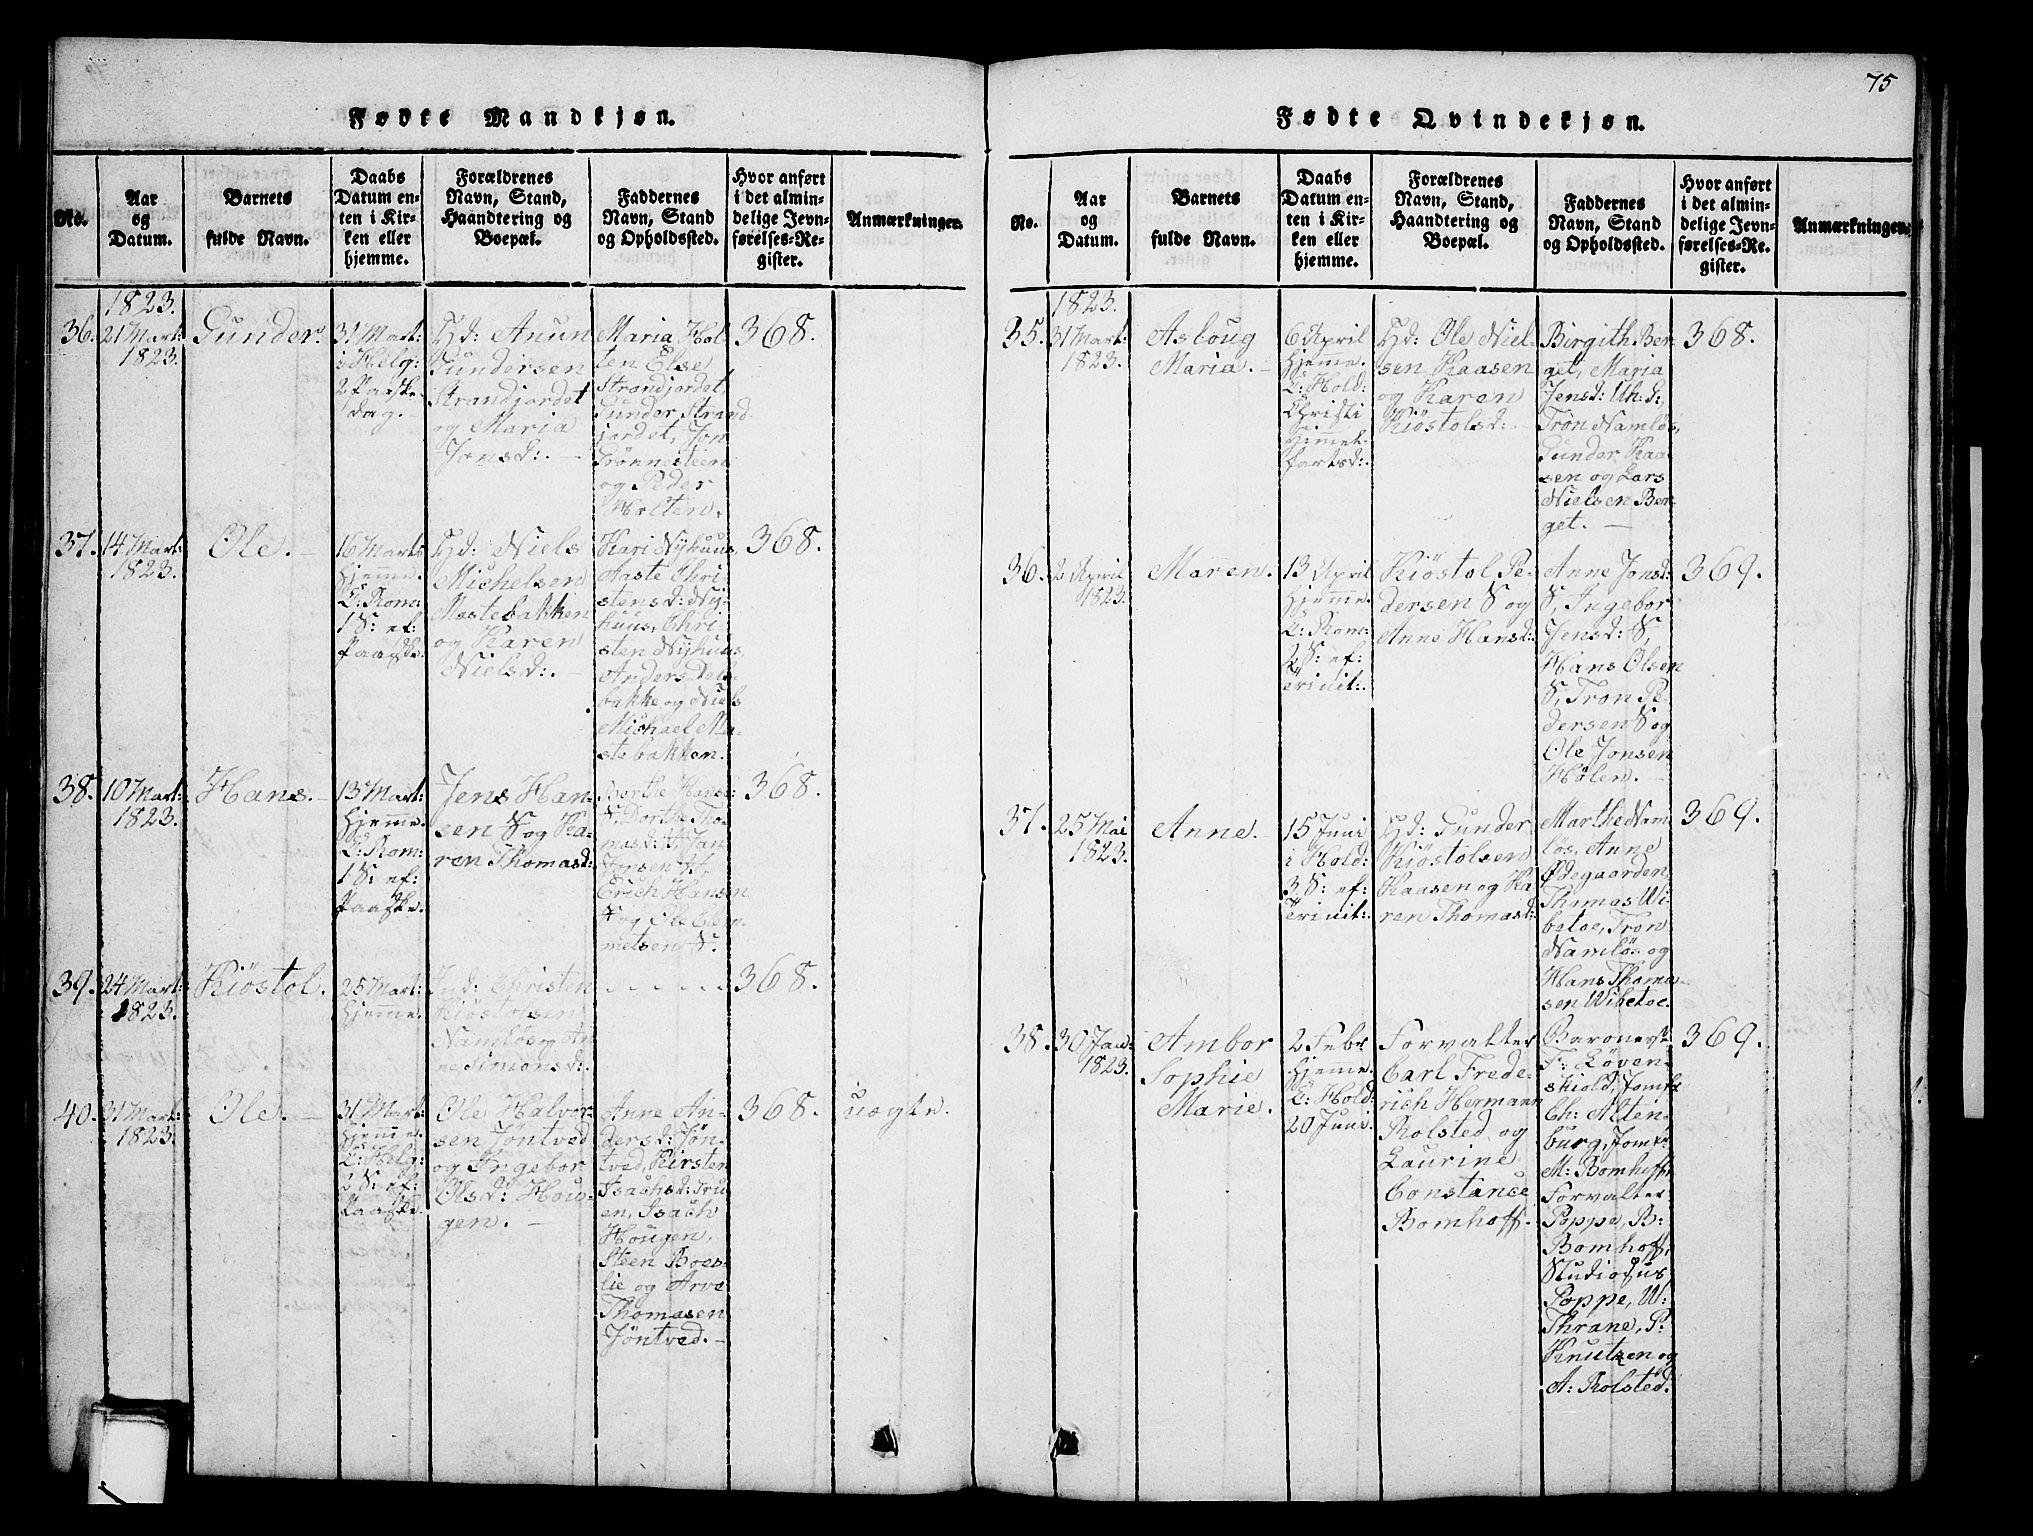 75
Fødte Mandkjøn.
No.
Aar
og
Datum.
Barnets
fulde Navn.
Daabs
Datum en-
ten i Kir-
ken eller
hjemme.
Forældrenes
Navn, Stand,
Haandtering og
Boepæl.
Faddernes
Navn, Stand
og Opholdssted.
Hvor anført
i det almin-
delige Jevn-
førelses-Re-
gister.
Anmærkninger.
1823.
36.
21 Mart:
1823.
Gunder.
31 Mart:
i Helg:
2 Paaske-
dag.
Gd: Anun
Gundersen
Strandjordet
og Maria
Jonsd:.
Maria Hol-
ten Else
Strandjordet,
Gunder Strand-
jordet, Jon
Trönnesteen
og Peder
Holten.
368.
37.
14 Mart:
1823.
Ole.
16 Marts
hjemme.
E: Rom:
1 S: ef:
Paaske.
Gd: Niels
Michelsen
Mastebakken
og Karen
Nielsd:.
Kari Nyhuus,
Aaste Chri-
stensd: Ny-
huus, Chri-
sten Nyhuus,
Anders Dal-
bakke og Niels
Michael Ma-
stebakken.
368.
38.
10 Mart:
1823.
Hans.
13 Mart:
hjemme.
E: Rom:
1 S: ef:
Paaske.
Jens Han-
sen S og Ka-
ren Thomasd:
Berthe Hansd:
S, Dorthe Tho-
masd: H, Jan
Jonsen H,
Erich Hansen
S og Ole Clem-
metsen S.
368.
39.
24 Mart:
1823.
Kiöstol.
25 Mart:
hjemme.
Ind: Christen
Kiöstolsen
Namlös og An-
ne Simonsd:.
368.
40.
31 Mart:
1823.
Ole.
31 Mart:
hjemme.
E: Helg:
2 S: ef:
Paaske.
Ole Halvor-
sen Jöntved
og Ingebor
Olsd: Hou-
gen.
Anne An-
dersd: Jön-
tved, Kirsten
Isachsd: Tru-
en, Isach
Hougen,
Steen Boes-
lie og Arve
Thomasen
Jöntved.
368.
uægte.
Fødte Qvindekjøn.
No.
Aar
og
Datum.
Barnets
fulde Navn.
Daabs
Datum en-
ten i Kir-
ken eller
hjemme.
Forældrenes
Navn, Stand,
Haandtering og
Boepæl.
Faddernes
Navn, Stand
og Opholdssted.
Hvor anført
i det almin-
delige Jevn-
førelses-Re-
gister.
Anmærkninger.
1823.
35.
31 Mart:
1823.
Asloug
Maria.
6 April
hjemme.
E: Hold:
Christi
Himmel-
fartsd:.
Gd: Ole Niel-
sen Kaasen
og Karen
Kiöstolsd:
Birgith Ber-
get, Maria
Jensd:
Tron Namlös,
Gunder Kaa-
sen og Lars
Nielsen Ber-
get.
368.
36.
2 April
1823.
Maren.
13 April
hjemme.
E: Rom:
2 S: ef:
Trinit:.
Kiöstol Pe-
dersen S og
Anne Hansd:
Anne Jonsd:
S, Ingebor
Jensd: S,
Hans Olsen
S, Tron Pe-
dersen S og
Ole Jonsen
Hölen.
369.
37.
25 Mai
1823.
Anne.
15 Juni
i Hold:
3 S: ef:
Trinit:.
Gd: Gunder
Kiöstolsen
Kaasen og Ka-
ren Thomasd:
Marthe Nam-
lös, Anne
Ödegaarden,
Thomas Wi-
betoe, Tron
Namlös og
Hans Thoma-
sen Wibetoe.
369.
38.
30 Jan:
1823.
Ambor
Sophie
Marie.
2 Febr
hjemme.
E: Hold:
20 Juni.
Forvalter
Carl Frede-
rich Hermann
Rolsted og
Laurine
Constance
Bomhoff.
Baronesse
F: Løven-
skiold, Jomfr
Ch: Alten-
burg, Jomfr
M: Bomhoff,
Forvalter
Poppe, B:
Bomhoff,
Studiosus
Poppe, W:
Thrane, P:
Knutzen og
A: Rolsted.
369.